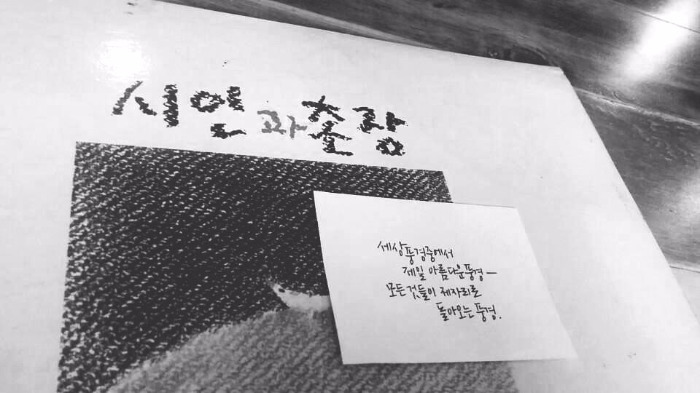 시인과 촌장
세상풍경중에서
제일 아름다운풍경—
모든 것들이 제자리로
돌아오는 풍경.